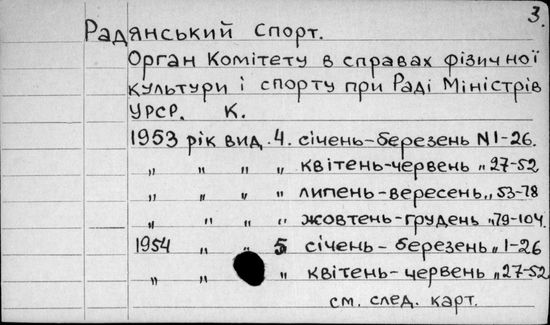 3.
Радянський спорт.
Орган Комітету в справах фізичної
культури і спорту при Раді Міністрів
УРСР. К.
1953 рік вид. 4. січень-березень N1-26.
„ „ „ „ квітень-червень „27-52
„ „ „ „ липень-вересень „53-78
„ „ „ „ жовтень-грудень „79-104.
1954 „ „ 5 січень-березень „1-26
„ „ „ квітень-червень „27-52
см. след. карт.